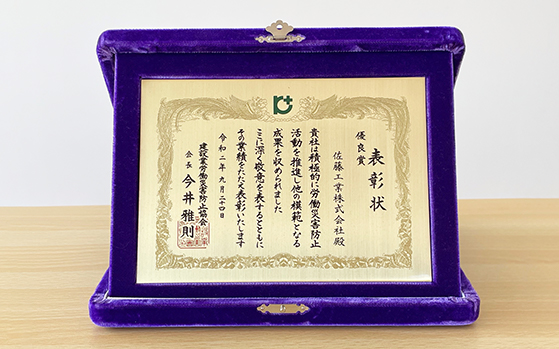 表彰状
優良賞
佐藤工業株式会社殿
貴社は積極的に労働災害防止
活動を推進し他の模範となる
成果を収められました
ここに深く敬意を表するとともに
その業績をたたえ表彰いたします
令和二年九月二四日
建設業労働災害防止協会
会長 今井雅則